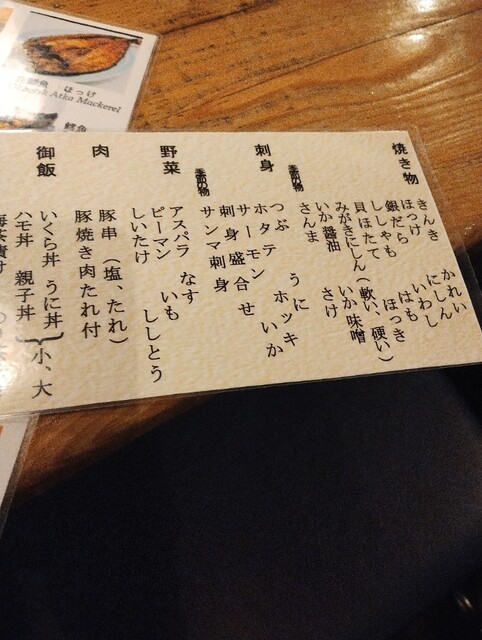 ほっけ
Okhotsk Atka Mackerel
焼き物
きんき　かれい
ほっけ　にしん
銀だら　いわし
ししゃも　はも
貝ほたて　ほっき
みがきにしん（軟い、硬い）
いか醤油　いか味噌
さんま　さけ
季節の物
刺身
つぶ　うに
ホタテ　ホッキ
サーモン　いか
刺身盛合せ
サンマ刺身
季節の物
野菜
アスパラ　なす
ピーマン　いも
しいたけ　ししとう
肉
豚串（塩、たれ）
豚焼き肉たれ付
御飯
いくら丼　うに丼
ハモ丼　親子丼
小、大